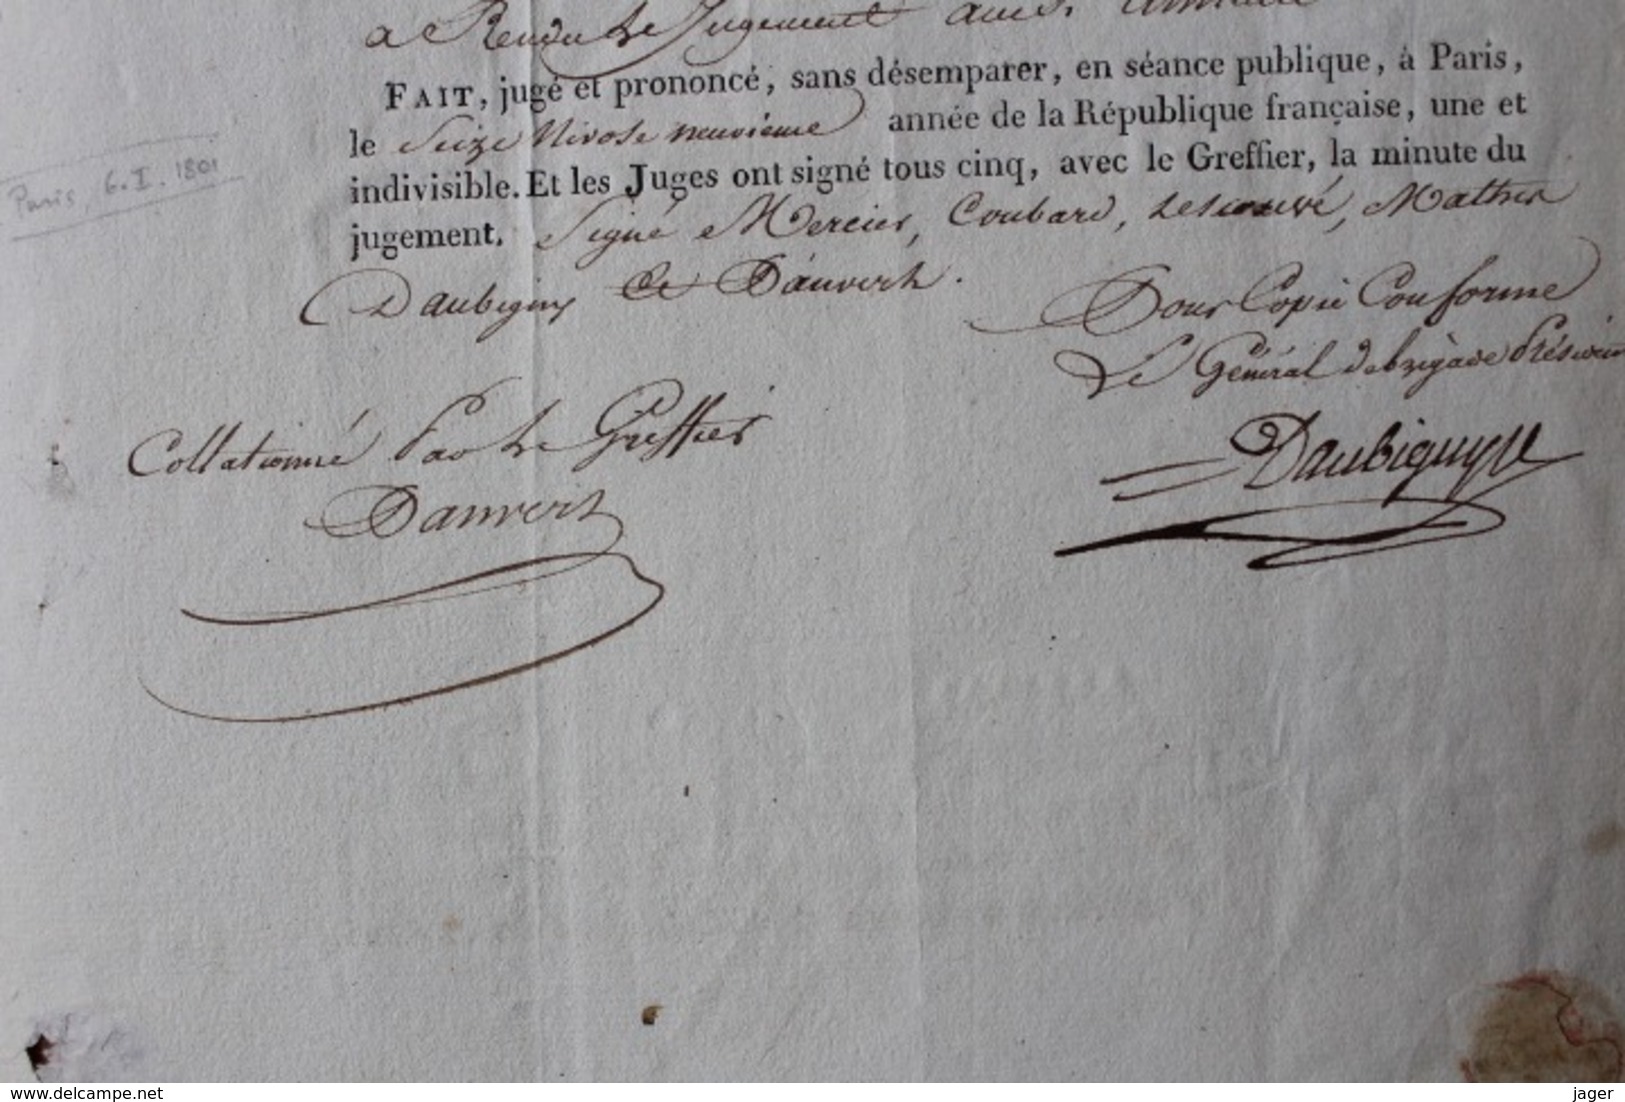 a Rendu Le Jugement
FAIT, jugé et prononcé, sans désemparer, en séance publique, à Paris,
le Seize Nivose neuvieme année de la République française, une et
indivisible. Et les Juges ont signé tous cinq, avec le Greffier, la minute du
jugement. Signé Mercier, Coubard, Mathis
Daubigny Et Dauvert.
Paris, 6. I. 1801
Pour Copie Conforme
Le Général de brigade Président
Collationné Par Le Greffier
Daubigny
Dauvert
www.delcampe.net
jager